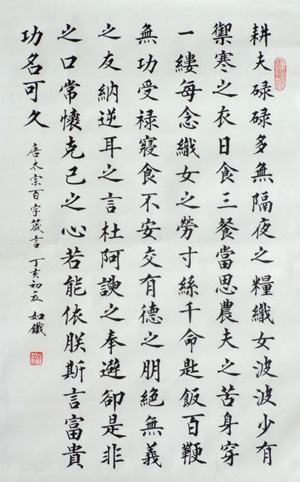 耕夫碌碌多無隔夜之糧織女波波少有
禦寒之衣日食三餐當思農夫之苦身穿
一縷每念織女之勞寸絲千命匙飯百鞭
無功受禄寢食不安交有德之朋絕無義
之友納逆耳之言杜阿諛之奉避卻是非
之口常懷克己之心若能依朕斯言富貴
功名可久
唐太宗百字箴言 丁亥初夏 如鐵